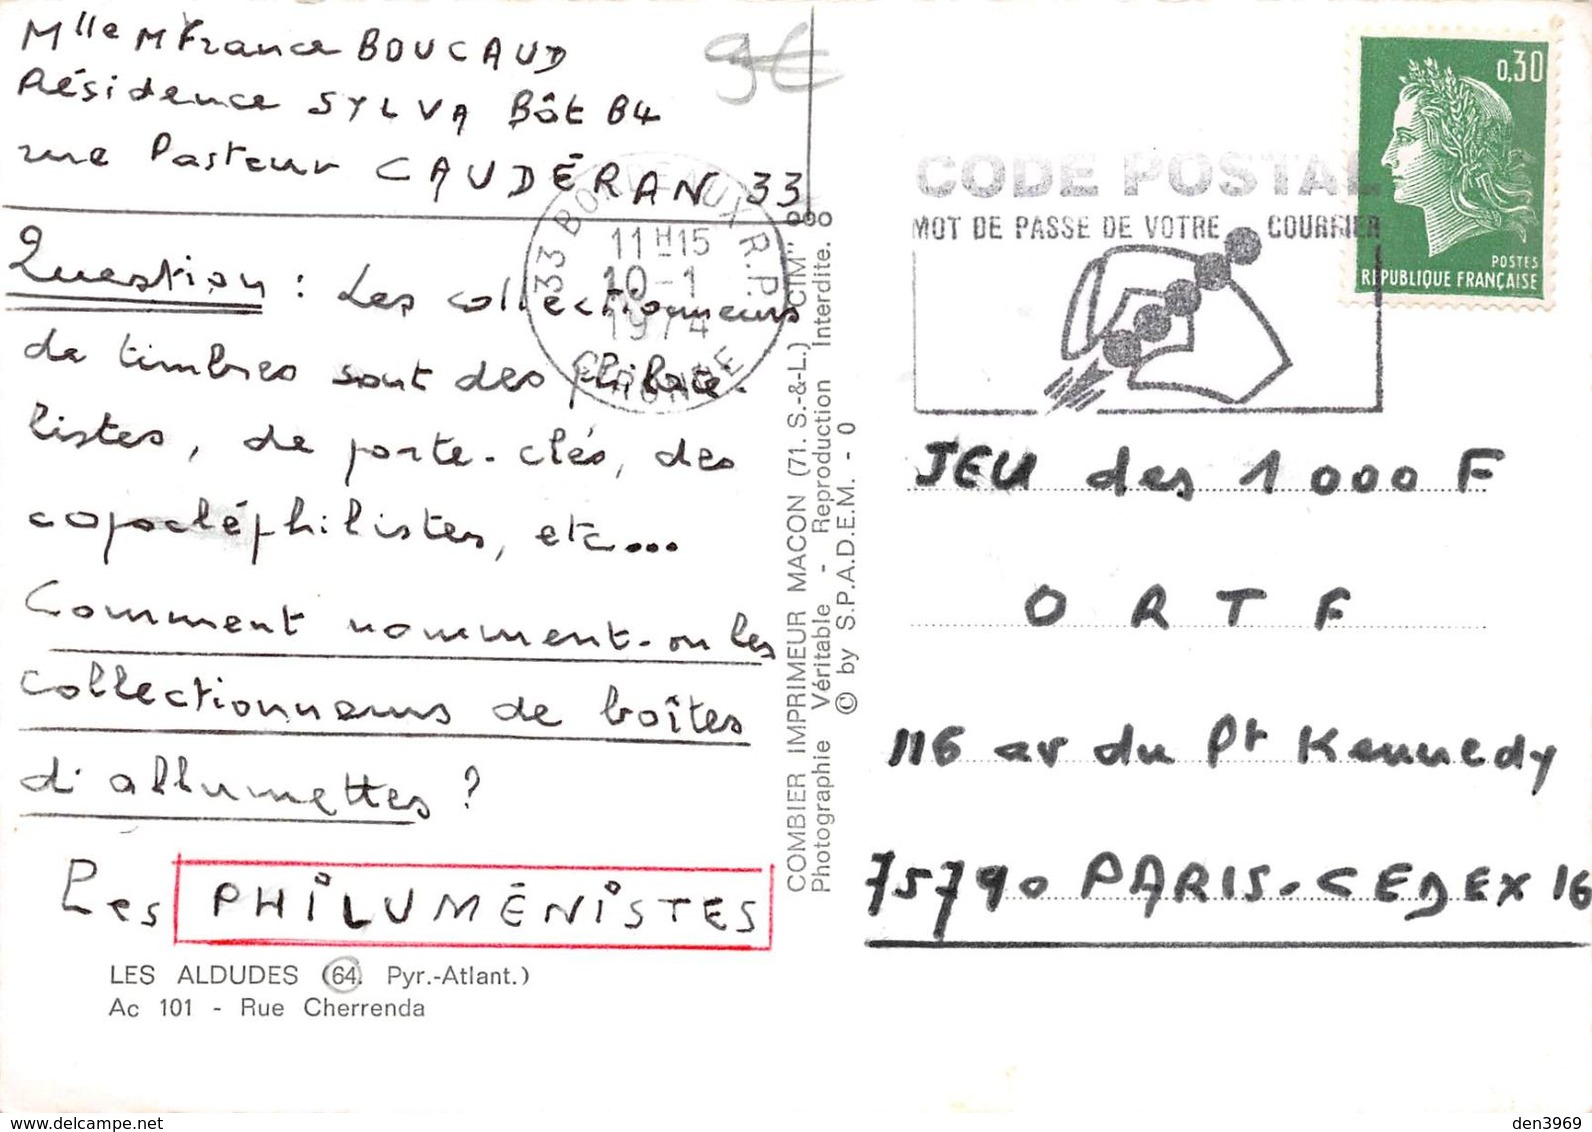 Mlle M France BOUCAUD
Résidence SYLVA Bât B4
rue Pasteur CAUDÉRAN 33
Question : Les collectionneurs
de timbres sont des philaté-
listes, de porte-clés, des
copocléphilistes, etc...
Comment nomment-on les
collectionneurs de boîtes
d'allumettes ?
Les PHILUMÉNISTES
LES ALDUDES (64. Pyr.-Atlant.)
Ac 101 - Rue Cherrenda
9€
33 BORDEAUX R.P.
11H15
10-1
1974
GIRONDE
COMBIER IMPRIMEUR MACON (71. S.-&-L.) "CIM"
Photographie Véritable - Reproduction Interdite.
© by S.P.A.D.E.M. - 0
CODE POSTAL
MOT DE PASSE DE VOTRE COURRIER
0,30
POSTES
REPUBLIQUE FRANÇAISE
JEU des 1000 F
O R T F
116 av du Pt Kennedy
75790 PARIS-CEDEX 16
www.delcampe.net
den3969